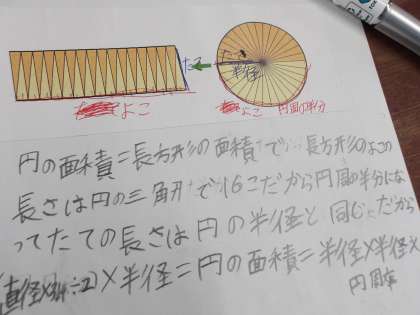 たて
たて
半径
よこ
よこ
円周の半分
円の面積=長方形の面積で長方形のよこの
長さは円の三角形で16こだから円周の半分にな
ってたての長さは円の半径と同じだから
(直径×3.14÷2)×半径=円の面積=半径×半径×
円周率